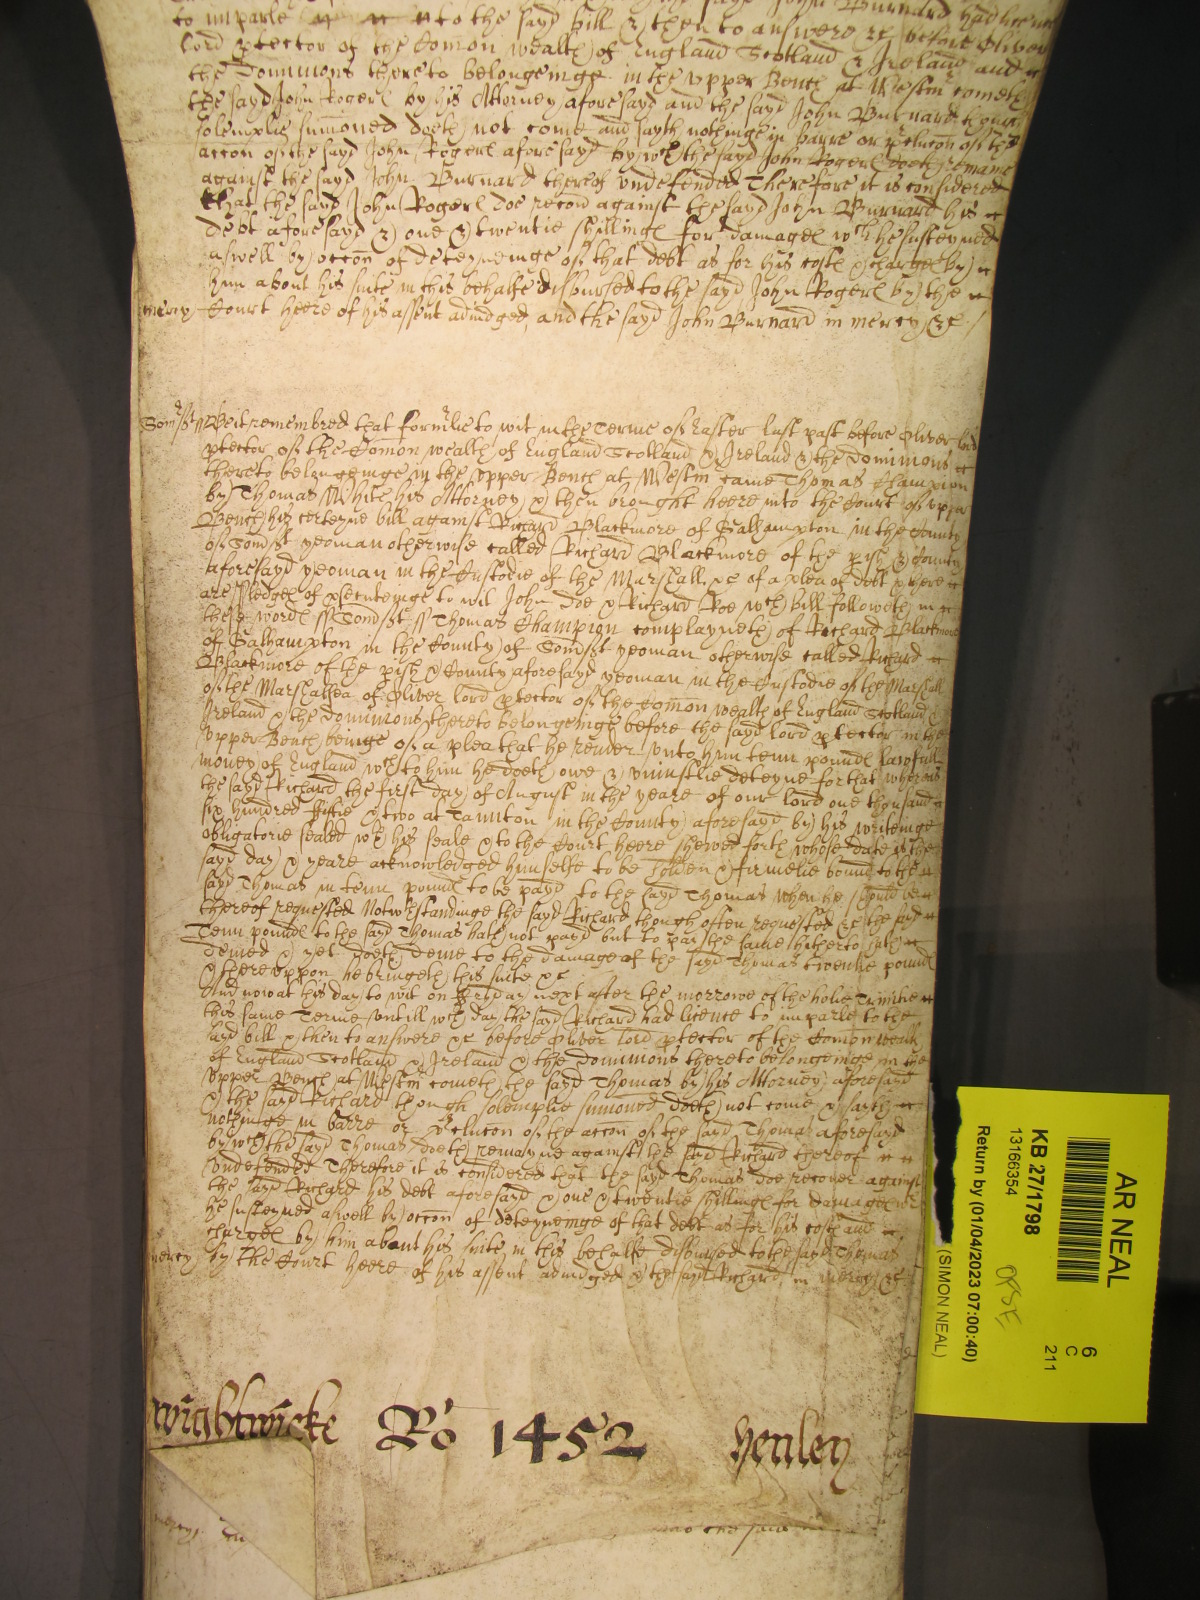 to imparle to the sayd bill & then to answere &c before Oliver
lord ptector of the Comon wealth of England Scotland & Ireland and
the Dominions thereto belongeinge in the Upper Bench at Westm cometh
the sayd John Rogers by his Attorney aforesayd and the sayd John Burnard though
solemplie sumoned doeth not come and sayth nothinge in barre or pclucon of the
accon of the sayd John Rogers aforesayd by wch the sayd John Rogers doeth remaine
against the sayd John Burnard thereof undefended Therefore it is considered
that the sayd John Rogers doe recov against the sayd John Burnard his
debt aforesayd & one & twentie shillings for damages wch he susteyned
aswell by occon of deteyneinge of that debt as for his costs & charges by
him about his suite in this behalfe disbursed to the sayd John Rogers by the
mercy Court heere of his assent adiudged, and the sayd John Burnard in mercy &c /
Somst ss Be it remembred that formlie to wit in the Terme of Easter last past before Oliver lord
ptector of the Comon wealth of England Scotland & Ireland & the Dominions
thereto belongeinge in the Upper Bench at Westm came Thomas Champion
by Thomas White his Attorney & then brought heere into the Court of Upper
Bench his certeyne bill against Richard Blackmore of Galhampton in the County
of Somst yeoman otherwise called Richard Blackmore of the pish & County
aforesayd yeoman in the Custodie of the Marshall &c of a plea of debt & there
are pledges of psecuteinge to wit John Doe & Richard Roe wch bill followeth in
these words ss Somst ss Thomas Champion complayneth of Richard Blackmore
of Galhampton in the County of Somst yeoman otherwise called Richard
Blackmore of the pish & County aforesayd yeoman in the Custodie of the Marshall
of the Marshalsea of Oliver lord ptector of the Comon wealth of England Scotland &
Ireland & the Dominions thereto belongeinge before the sayd lord ptector in the
Upper Bench beinge of a plea that he render unto him tenn pounds lawfull
money of England wch to him he doeth owe & uniustlie deteyne for that whereas
the sayd Richard the first day of August in the yeare of our lord one thousand
six hundred fiftie & two at Taunton in the County aforesayd by his writeinge
obligatorie sealed wth his seale & to the Court heere shewed forth whose date is the
sayd day & yeare acknowledged himselfe to be holden & firmelie bound to the
sayd Thomas in tenn pounds to be payd to the sayd Thomas when he should be
thereof requested Notwthstandinge the sayd Richard though often requested &c the sayd
Tenn pounds to the sayd Thomas hath not payd but to pay the same hitherto hath
denied & yet doeth denie to the damage of the sayd Thomas twentie pounds
& thereuppon he bringeth his suite &c
And now at this day to wit on Fryday next after the morrowe of the holie Trinitie
this same Terme untill wch day the sayd Richard had licence to imparle to the
sayd bill & then to answere &c before Oliver lord ptector of the Comon wealth
of England Scotland & Ireland & the Dominions thereto belongeinge in the
Upper Bench at Westm cometh the sayd Thomas by his Attorney aforesayd
& the sayd Richard though solemplie sumoned doeth not come & sayth
nothinge in barre or pclucon of the accon of the sayd Thomas aforesayd
by wch the sayd Thomas doeth remayne against the sayd Richard thereof
undefended Therefore it is considered that the sayd Thomas doe recover against
the sayd Richard his debt aforesayd & one & twentie shillings for damages wch
he susteyned aswell by occon of deteyneinge of that debt as for his costs and
charges by him about his suite in this behalfe disbursed to the sayd Thomas
mercy by the Court heere of his assent adiudged & the sayd Richard in mercy &c
Wightwicke Ro 1452 Henley
mercy
and the said
AR NEAL
KB 27/1798
13166354
Return by (01/04/2023 07:00:40)
(SIMON NEAL)
6
C
211